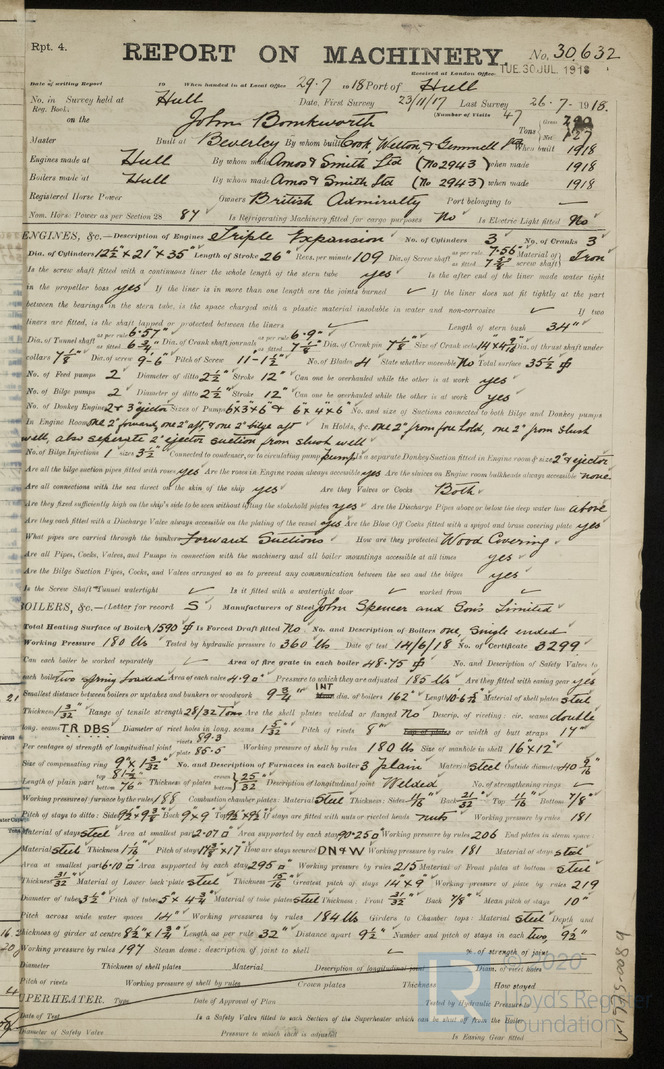 Rpt. 4.
REPORT ON MACHINERY
No. 30,632
Received at London Office TUE. 30 JUL. 1918
Date of writing Report 19 When handed in at Local Office 29.7 1918 Port of Hull
No. in Survey held at Hull Date, First Survey 23/11/17 Last Survey 26.7.1918.
Reg. Book. (Number of Visits 47
on the John Bomkworth Tons Gross Net
Master Built at Beverley By whom built Cook, Welton & Gemmell Ltd When built 1918
Engines made at Hull By whom made Amos & Smith Ltd (No 2943) when made 1918
Boilers made at Hull By whom made Amos & Smith Ltd (No 2943) when made 1918
Registered Horse Power Owners British Admiralty Port belonging to
Nom. Horse Power as per Section 28 87 Is Refrigerating Machinery fitted for cargo purposes No Is Electric Light fitted No
ENGINES, &c.—Description of Engines Triple Expansion No. of Cylinders 3 No. of Cranks 3
Dia. of Cylinders 12½" × 21" × 35" Length of Stroke 26" Revs. per minute 109 Dia. of Screw shaft as per rule 7.56" as fitted 7⅞" Material of screw shaft Iron
Is the screw shaft fitted with a continuous liner the whole length of the stern tube yes Is the after end of the liner made water tight
in the propeller boss yes If the liner is in more than one length are the joints burned If the liner does not fit tightly at the part
between the bearings in the stern tube, is the space charged with a plastic material insoluble in water and non-corrosive If two
liners are fitted, is the shaft lapped or protected between the liners Length of stern bush 34"
Dia. of Tunnel shaft as per rule 6.57" as fitted 6¾" Dia. of Crank shaft journals as per rule 6.9" as fitted 7⅛" Dia. of Crank pin 7⅛" Size of Crank webs 14" × 4 9/16" Dia. of thrust shaft under
collars 7⅛" Dia. of screw 9'-6" Pitch of Screw 11-1½" No. of Blades 4 State whether moveable No Total surface 35½
No. of Feed pumps 2 Diameter of ditto 2½" Stroke 12" Can one be overhauled while the other is at work yes
No. of Bilge pumps 2 Diameter of ditto 2½" Stroke 12" Can one be overhauled while the other is at work yes
No. of Donkey Engines 2 & 3" ejector Sizes of Pumps 6×3×6 & 6×4×6 No. and size of Suctions connected to both Bilge and Donkey pumps
In Engine Room one 2" forward, one 2" aft, & one 2" bilge aft In Holds, &c. one 2" from fore hold, one 2" from slush
well, also separate 2" ejector suction from slush well
No. of Bilge Injections 1 sizes 3½" Connected to condenser, or to circulating pump pump Is a separate Donkey Suction fitted in Engine room & size 2" ejector
Are all the bilge suction pipes fitted with roses yes Are the roses in Engine room always accessible yes Are the sluices on Engine room bulkheads always accessible none
Are all connections with the sea direct on the skin of the ship yes Are they Valves or Cocks Both
Are they fixed sufficiently high on the ship's side to be seen without lifting the stokehold plates yes Are the Discharge Pipes above or below the deep water line above
Are they each fitted with a Discharge Valve always accessible on the plating of the vessel yes Are the Blow Off Cocks fitted with a spigot and brass covering plate yes
What pipes are carried through the bunkers Forward Suctions How are they protected Wood Covering
Are all Pipes, Cocks, Valves, and Pumps in connection with the machinery and all boiler mountings accessible at all times yes
Are the Bilge Suction Pipes, Cocks, and Valves arranged so as to prevent any communication between the sea and the bilges yes
Is the Screw Shaft Tunnel watertight Is it fitted with a watertight door worked from
BOILERS, &c.—(Letter for record S) Manufacturers of Steel John Spencer and Sons Limited
Total Heating Surface of Boilers 1590 Is Forced Draft fitted No No. and Description of Boilers one, Single ended
Working Pressure 180 lbs Tested by hydraulic pressure to 360 lbs Date of test 14/6/18 No. of Certificate 3299
Can each boiler be worked separately Area of fire grate in each boiler 48.75 No. and Description of Safety Valves to
each boiler two spring loaded Area of each valve 4.90" Pressure to which they are adjusted 185 lbs Are they fitted with easing gear yes
Smallest distance between boilers or uptakes and bunkers or woodwork 9¾" INT dia. of boilers 162" Length 10-6½ Material of shell plates steel
Thickness 1 3/32 Range of tensile strength 28/32 Tons Are the shell plates welded or flanged No Descrip. of riveting: cir. seams double
long. seams T.R.DBS Diameter of rivet holes in long. seams 1 5/32 Pitch of rivets 8" Lap of plates or width of butt straps 17"
Per centages of strength of longitudinal joint rivets 89.3 plate 85.5 Working pressure of shell by rules 180 lbs Size of manhole in shell 16" × 12"
Size of compensating ring 9" × 1 3/32 No. and Description of Furnaces in each boiler 3 plain Material steel Outside diameter 40 9/16
Length of plain part top 81½" bottom 76" Thickness of plates crown bottom 25/32 Description of longitudinal joint Welded No. of strengthening rings
Working pressure of furnace by the rules 188 Combustion chamber plates: Material steel Thickness: Sides 11/16 Back 21/32 Top 11/16 Bottom 7/8"
Pitch of stays to ditto: Sides Back 9×9 Top If stays are fitted with nuts or riveted heads nuts Working pressure by rules 181
Material of stays steel Area at smallest part 2.07 Area supported by each stay 90.25 Working pressure by rules 206 End plates in steam space:
Material steel Thickness 1 3/16 Pitch of stays 17⅜ × 17 How are stays secured DN & W Working pressure by rules 181 Material of stays steel
Area at smallest part 6.10 Area supported by each stay 295 Working pressure by rules 215 Material of Front plates at bottom steel
Thickness 31/32 Material of Lower back plate steel Thickness 15/16 Greatest pitch of stays 14 × 9" Working pressure of plate by rules 219
Diameter of tubes 3½" Pitch of tubes 5 × 4¾ Material of tube plates steel Thickness: Front 31/32 Back 7/8" Mean pitch of stays 10"
Pitch across wide water spaces 14" Working pressures by rules 184 lbs Girders to Chamber tops: Material steel Depth and
thickness of girder at centre 8½" × 1¾" Length as per rule 32" Distance apart 9½" Number and pitch of stays in each two, 9½"
Working pressure by rules 197 Steam dome: description of joint to shell % of strength of joint
Diameter Thickness of shell plates Material Description of longitudinal joint Diam. of rivet holes
Pitch of rivets Working pressure of shell by rules Crown plates Thickness How stayed
SUPERHEATER. Type Date of Approval of Plan Tested by Hydraulic Pressure to
Date of Test Is a Safety Valve fitted to each Section of the Superheater which can be shut off from the Boiler
Diameter of Safety Valve Pressure to which each is adjusted Is Easing Gear fitted
© 2020
Lloyd's Register
Foundation